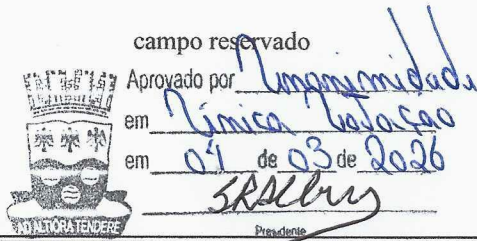 campo reservado
Aprovado por Unanimidade
em Única Votação
em 04 de 03 de 2026
Presidente
AD ALTIORA TENDERE